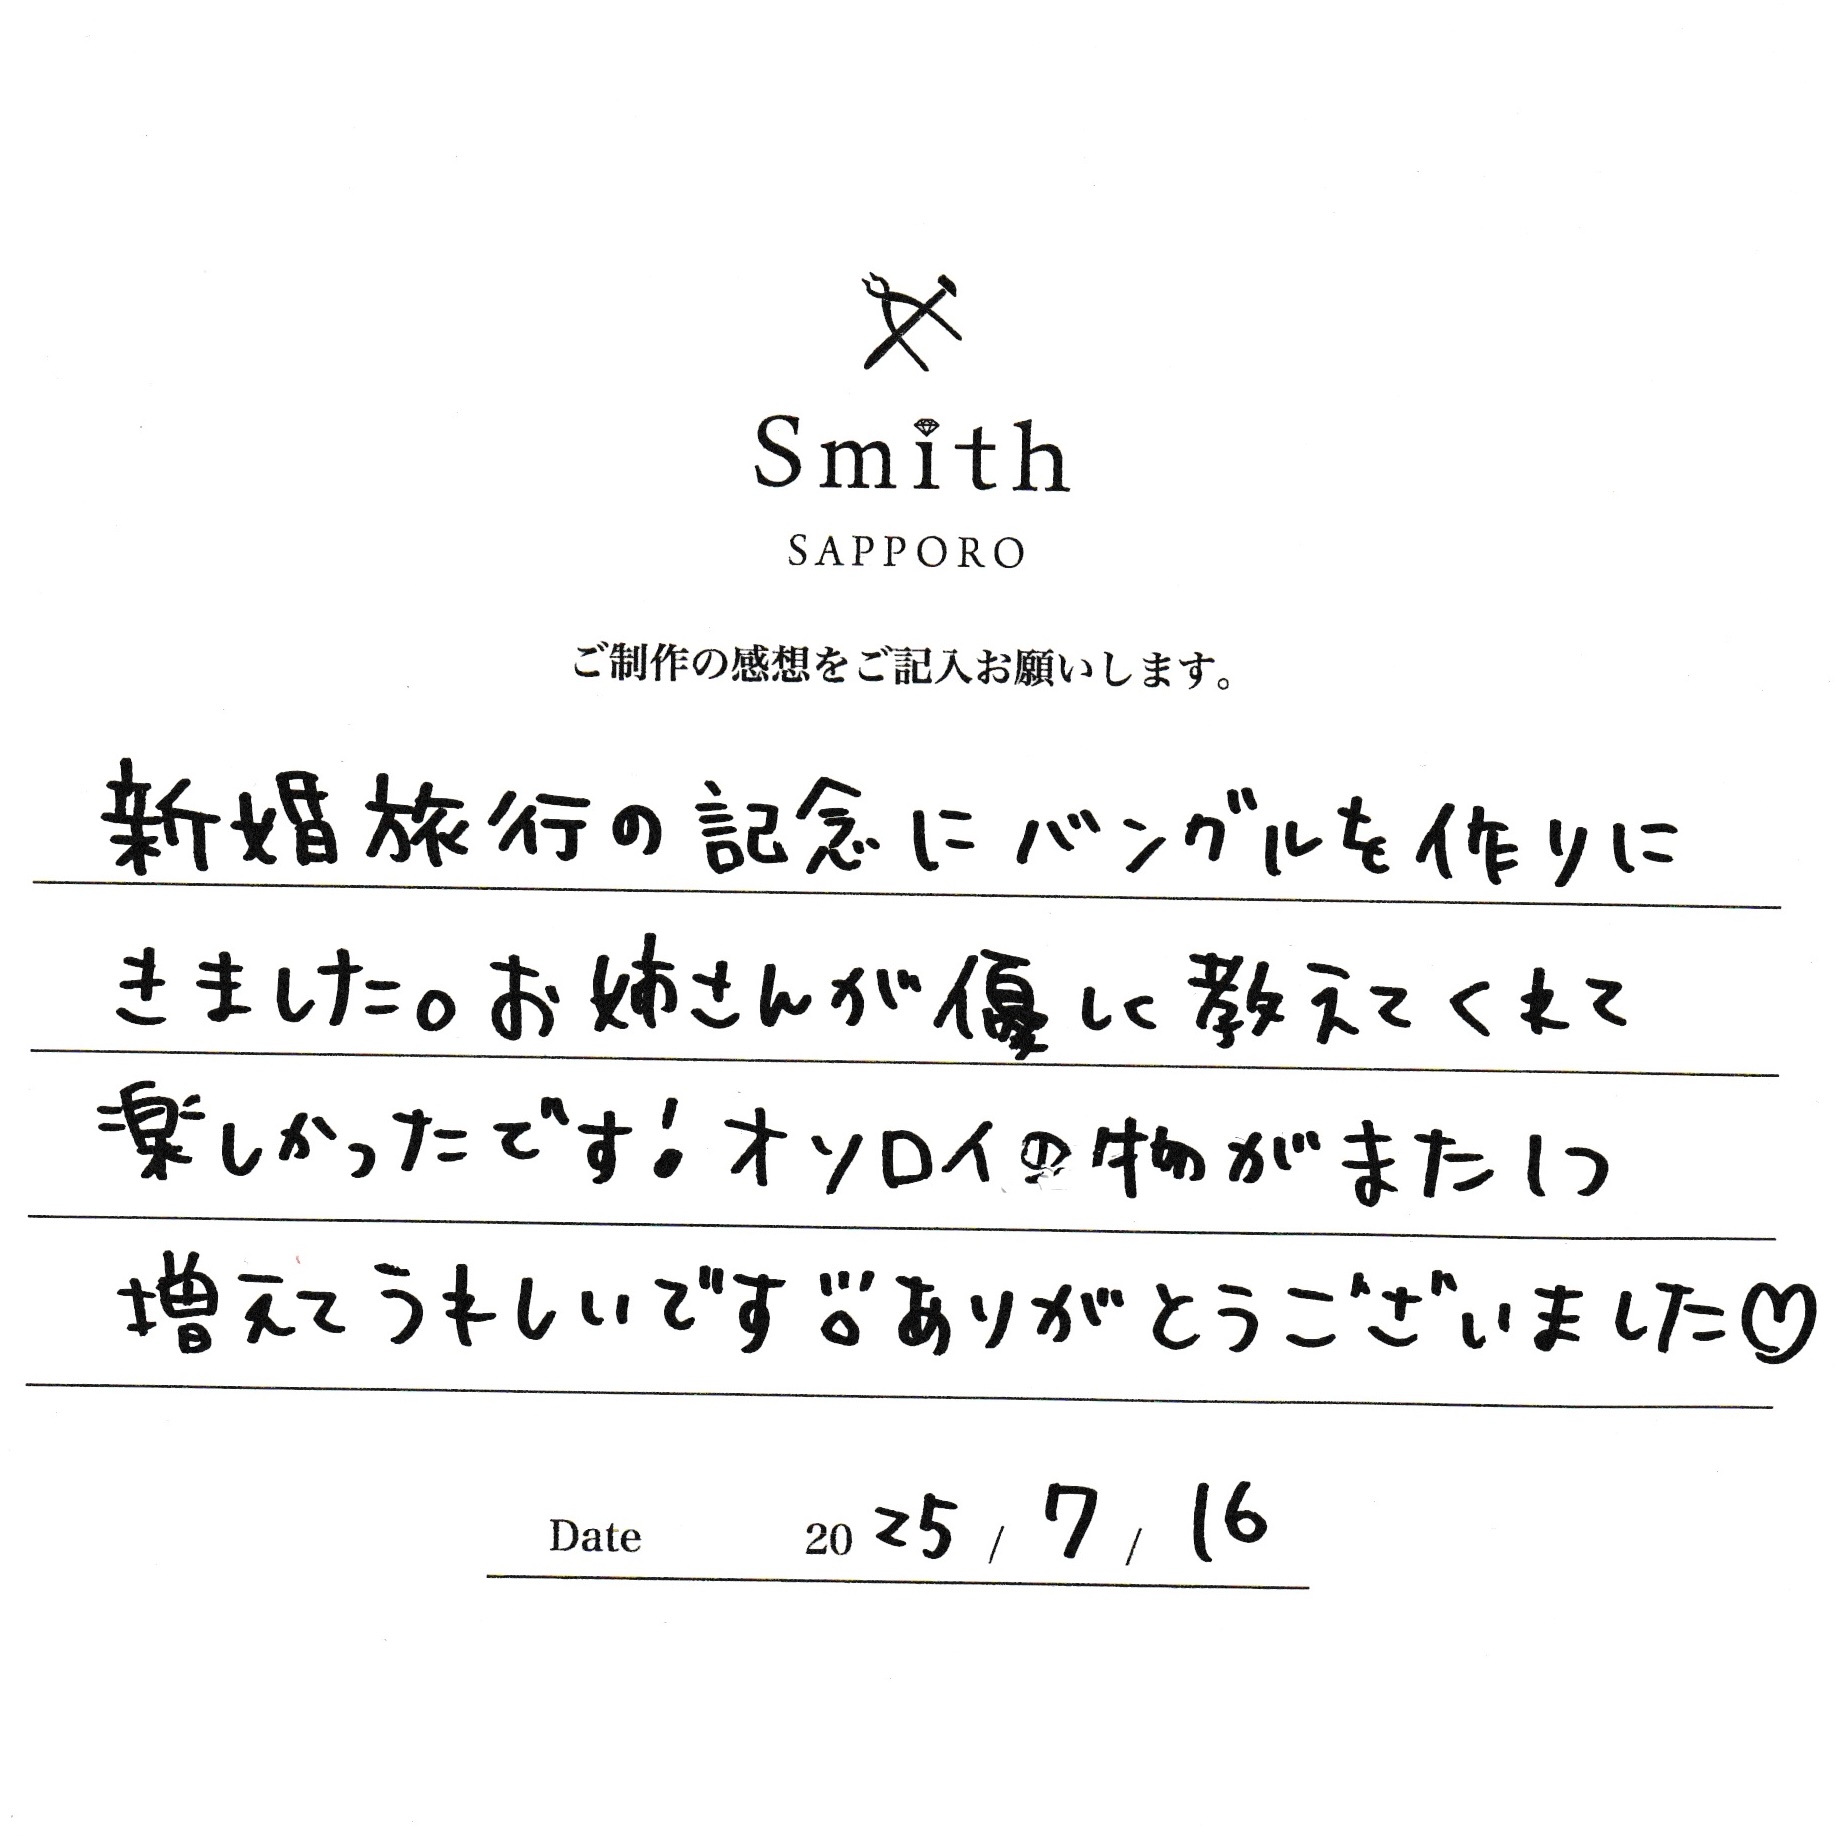 Smith
SAPPORO
ご制作の感想をご記入お願いします。
新婚旅行の記念にバングルを作りに
きました。お姉さんが優しく教えてくれて
楽しかったです!オソロイの物がまた1つ
増えてうれしいです。ありがとうございました♡
Date 2025 / 7 / 16